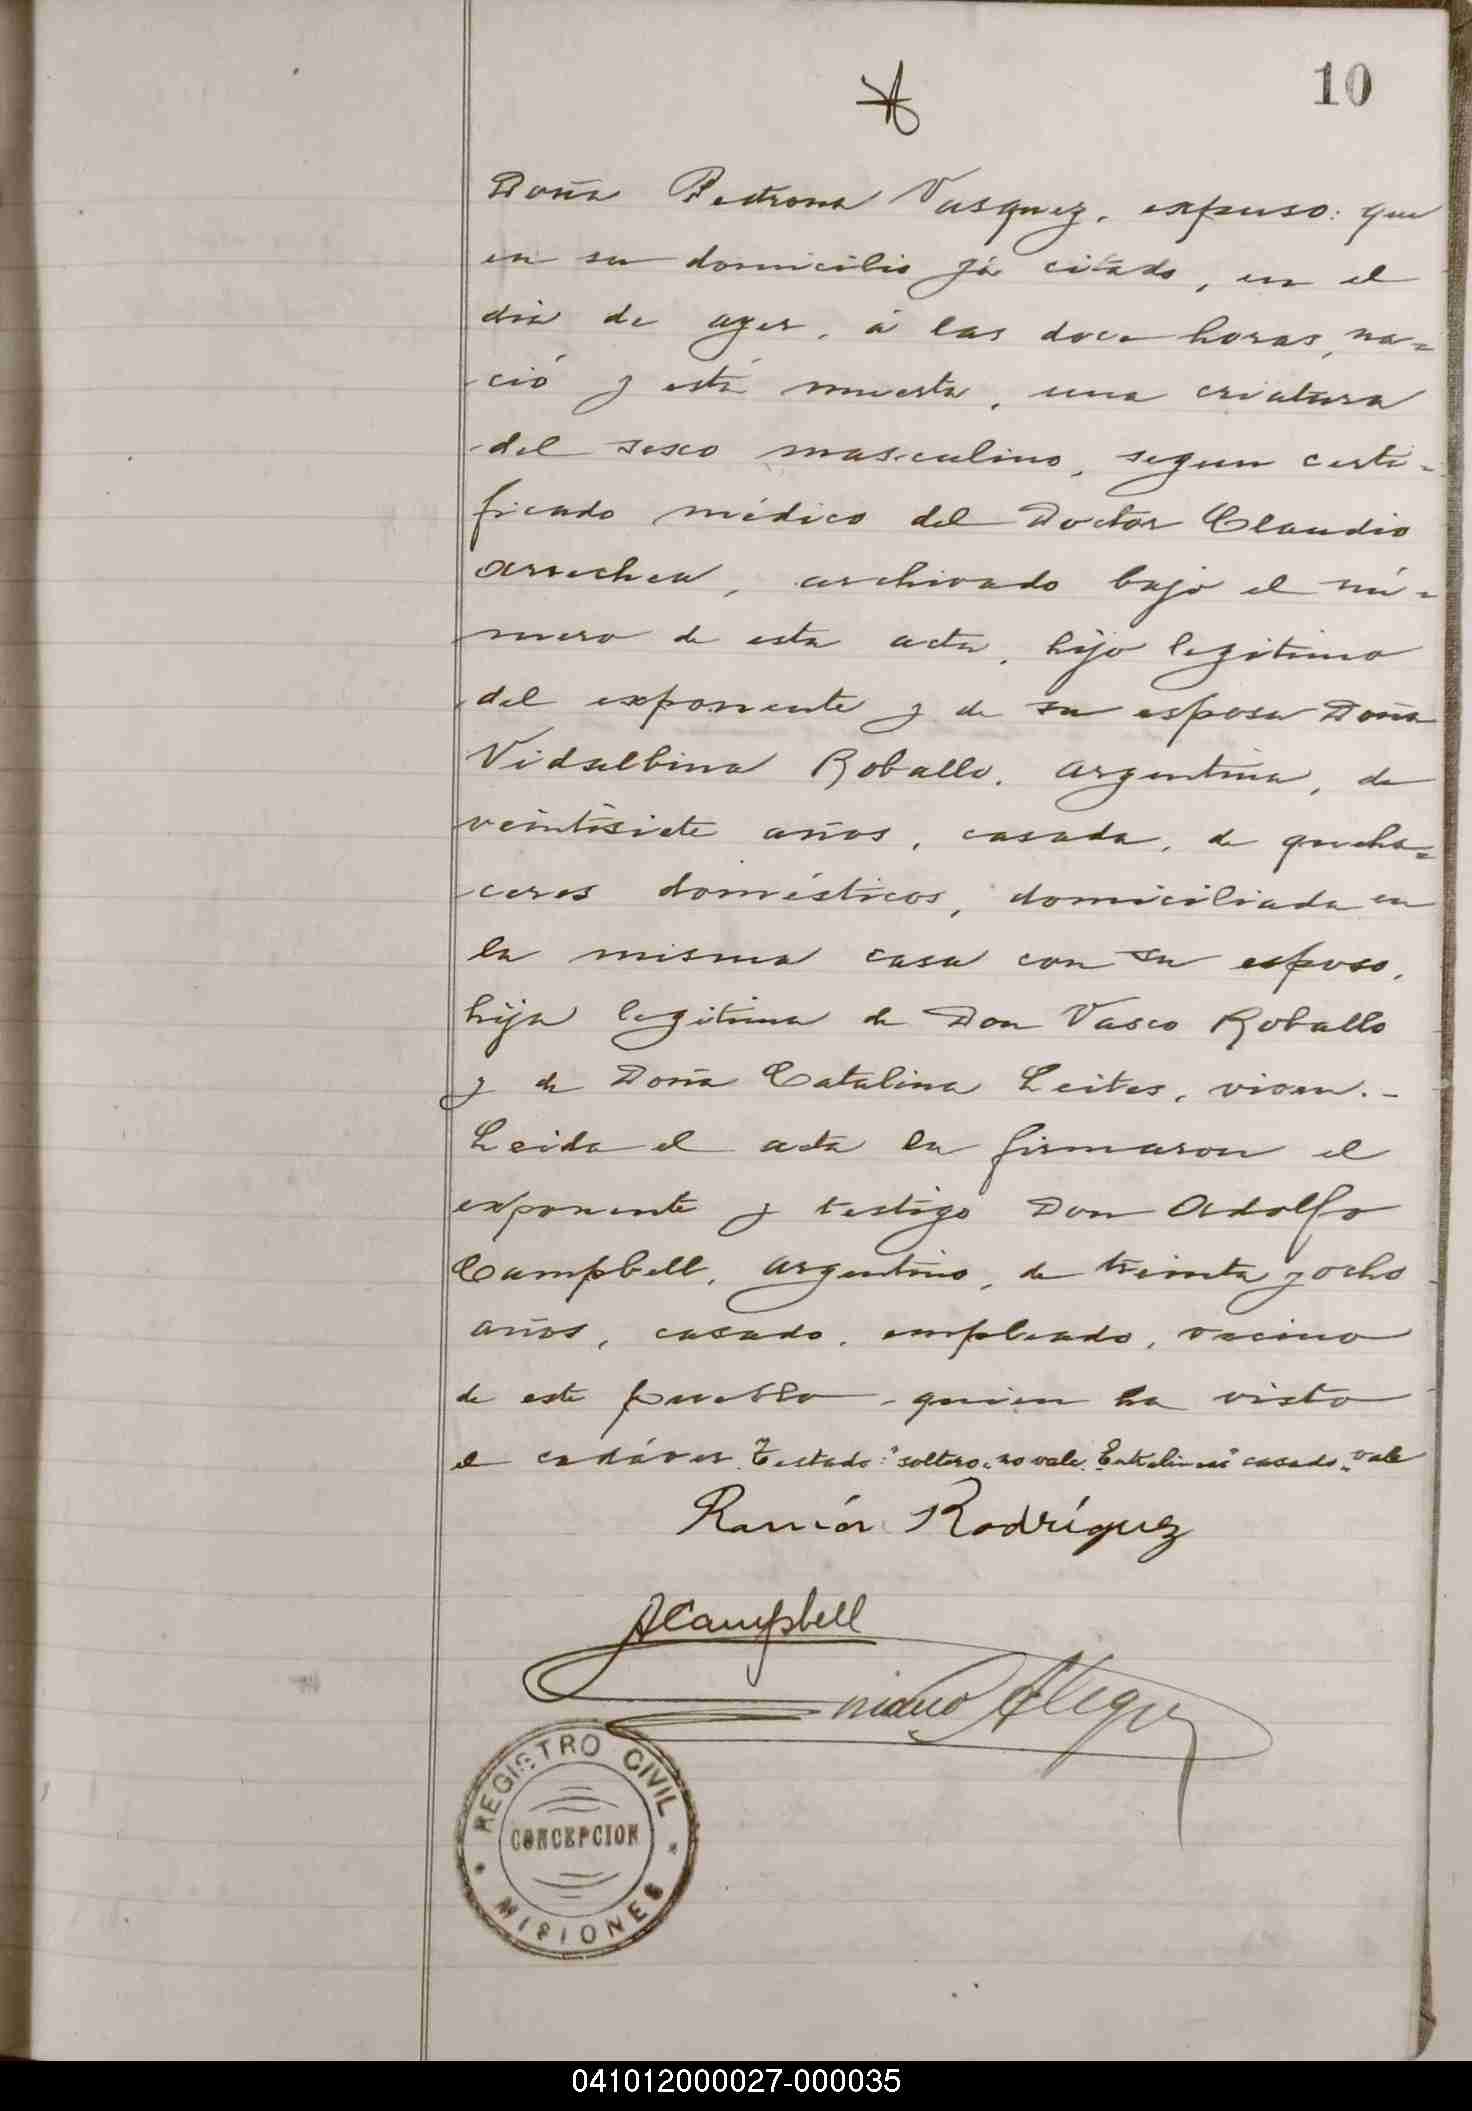 10
Doña Petrona Vasquez, expuso: que
en su domicilio já citado, en el
dia de ayer, á las doce horas, na=
ció y está muerta, una criatura
del sexo masculino, segun certi-
ficado médico del Doctor Claudio
Arrechea, archivado bajo el nú-
mero de esta acta, hijo legitimo
del exponente y de su esposa Doña
Vidalbina Roballo, argentina, de
veintisiete años, casada, de queha=
ceres domésticos, domiciliada en
la misma casa con su esposo,
hija legitima de Don Vasco Roballo
y de Doña Catalina Leites, viven.-
Leida el acta la firmaron el
exponente y testigo Don Adolfo
Campbell, argentino, de treinta y ocho
años, casado, empleado, vecino
de este pueblo, quien ha visto
el cadáver. Testado: "soltero" no vale. Entrelineas "casado" vale
Ramón Rodríguez
ACampbell
Alegre
REGISTRO CIVIL
CONCEPCION
MISIONES
041012000027-000035